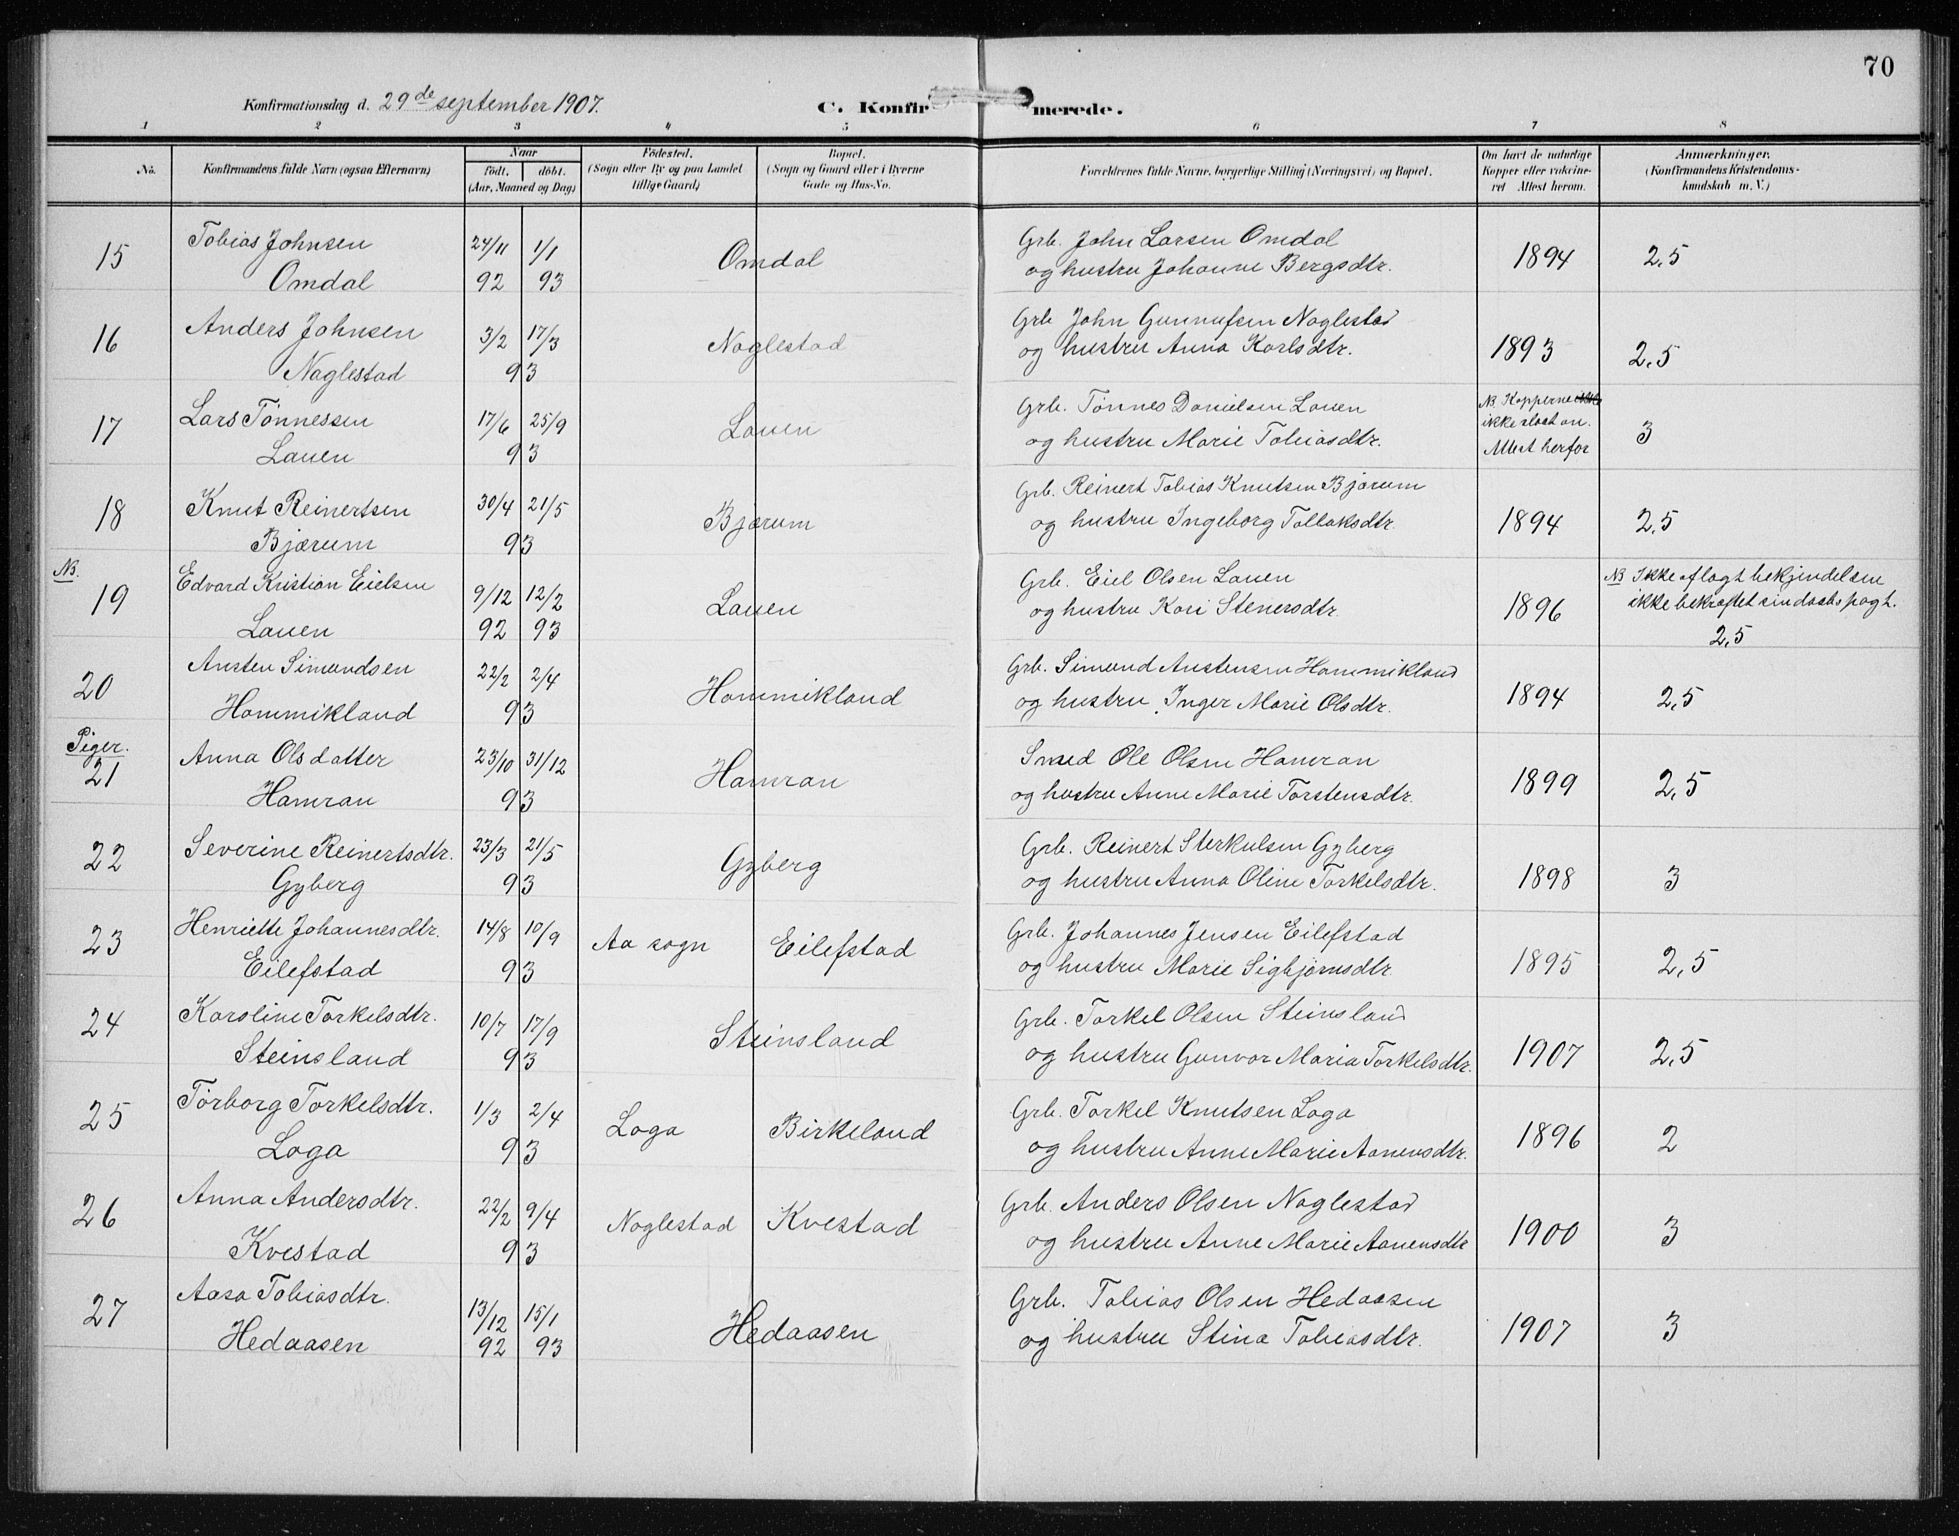 70
Konfirmationsdag d. 29de september 1907. C. Konfirmerede.
1 2 3 4 5 6 7 8
No. Konfirmandens fulde Navn (ogsaa Efternavn) Naar født. døbt. (Aar, Maaned og Dag) Fødested. (Sogn eller By og paa Landet tillige Gaard) Bopæl. (Sogn og Gaard eller i Byerne Gade og Hus-No. Forældrenes fulde Navne, borgerlige Stilling (Næringsvei) og Bopæl. Om havt de naturlige Kopper eller vakcineret Attest herom. Anmærkninger. (Konfirmandens Kristendomskundskab m. V.)
15 Tobias Johnsen 24/11 1/1 Omdal Grb. John Larsen Omdal 1894 2,5
Omdal 92 93 og hustru Johanne Bergsdtr.
16 Anders Johnsen 3/2 17/3 Naglestad Grb John Gunnufsen Naglestad 1893 2,5
Naglestad 93 og hustru Anna Karlsdtr.
17 Lars Tönnessen 17/6 25/9 Lauen Grb. Tönnes Danielsen Lauen NB. Kopperne
Lauen 93 og hustru Marie Tobiasdtr. ikke slaat an. 3
Attest herfor
18 Knut Reinertsen 30/4 21/5 Bjærum Grb. Reinert Tobias Knutsen Bjærum
Bjærum 93 og hustru Ingeborg Tallaksdtr. 1894 2,5
NB.
19 Edvard Kristian Eielsen 9/12 12/2 Lauen Grb. Eiel Olsen Lauen 1896 NB Ikke aflagt bekjendelsen
Lauen 92 93 og hustru Kari Stenersdtr. ikke bekræftet sin daabspagt.
2,5
20 Ansten Simundsen 22/2 2/4 Hommikland Grb. Simund Anstensen Hommikland
Hommikland 93 og hustru Inger Marie Olsdtr. 1894 2,5
Piger.
21 Anna Olsdatter 23/10 31/12 Hamran Smed Ole Olsen Hamran 1899 2,5
Hamran 93 og hustru Anne Marie Torstensdtr.
22 Severine Reinertsdtr. 23/3 21/5 Gyberg Grb. Reinert Sterkulsen Gyberg
Gyberg 93 og hustru Anna Oline Torkelsdtr. 1898 3
23 Henriette Johannesdtr. 14/8 10/9 Aa sogn Eilefstad Grb. Johannes Jensen Eilefstad
Eilefstad 93 og hustru Marie Sigbjørnsdtr. 1895 2,5
24 Karoline Torkelsdtr. 10/7 17/9 Steinsland Grb. Torkel Olsen Steinsland
Steinsland 93 og hustru Gunvor Maria Torkelsdtr. 1907 2,5
25 Torborg Torkelsdtr. 1/3 2/4 Loga Birkeland Grb. Torkel Knutsen Loga
Loga 93 og hustru Anne Marie Aanensdtr. 1896 2
26 Anna Andersdtr. 22/2 9/4 Naglestad Kvestad Grb. Anders Olsen Naglestad
Kvestad 93 og hustru Anne Marie Aanensdtr 1900 3
27 Aasa Tobiasdtr. 13/12 15/1 Hedaasen Grb. Tobias Olsen Hedaasen
Hedaasen 92 93 og hustru Stina Tobiasdtr. 1907 3